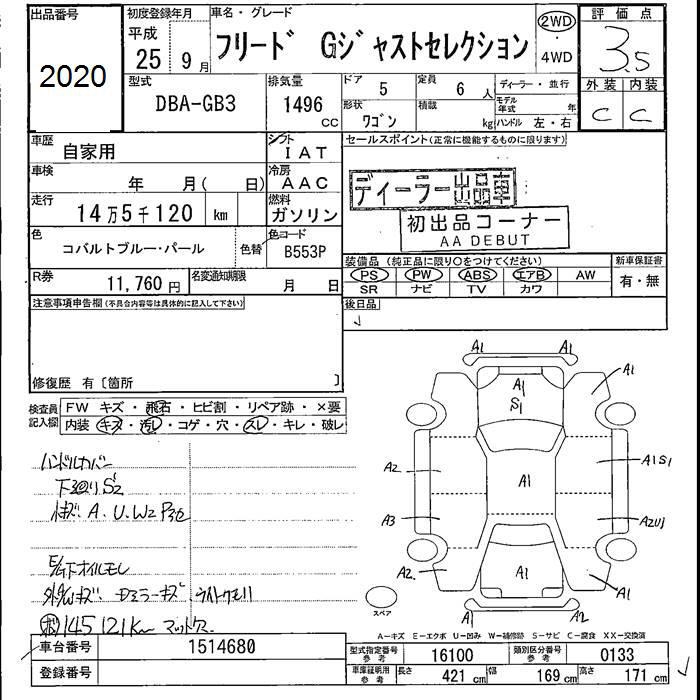 出品番号
2020
初度登録年月
平成
25 9月
車名・グレード
フリード Gジャストセレクション
2WD
・
4WD
評価点
3.5
外装 内装
C C
型式
DBA-GB3
排気量
1496
CC
ドア
5
定員
6 人
形状
ワゴン
積載
kg
ディーラー・並行
モデル年式 年
ハンドル 左・右
車歴
自家用
シフト
IAT
車検
年 月( 日)
冷房
AAC
走行
14万5千120 km
燃料
ガソリン
色
コバルトブルー・パール
色替
色コード
B553P
R券
11,760 円
名変通知期限
月 日
セールスポイント(正常に機能するものに限ります)
ディーラー出品車
初出品コーナー
AA DEBUT
装備品(純正品に限り○をつけてください)
PS PW ABS エアB AW
SR ナビ TV カワ
新車保証書
有・無
注意事項申告欄(不具合内容等は具体的に記入して下さい)
後日品
修復歴 有〔箇所 〕
検査員記入欄
FW キズ・飛石・ヒビ割・リペア跡・×要
内装 キズ・汚レ・コゲ・穴・スレ・キレ・破レ
ハンドルカバー
下廻りS2
A.U.W2 P
E/下オイルモレ
145121km
A1 A1
A1
A1
S1
A2
A1
A1S1
A3
A2U1
A2
A1
A1
A1 A1
スペア
A-キズ E-エクボ U-凹み W-補修跡 S-サビ C-腐食 XX-交換済
車台番号
1514680
登録番号
型式指定番号
参考
16100
類別区分番号
参考
0133
車庫証明用
参考
長さ
421 cm
幅
169 cm
高さ
171 cm